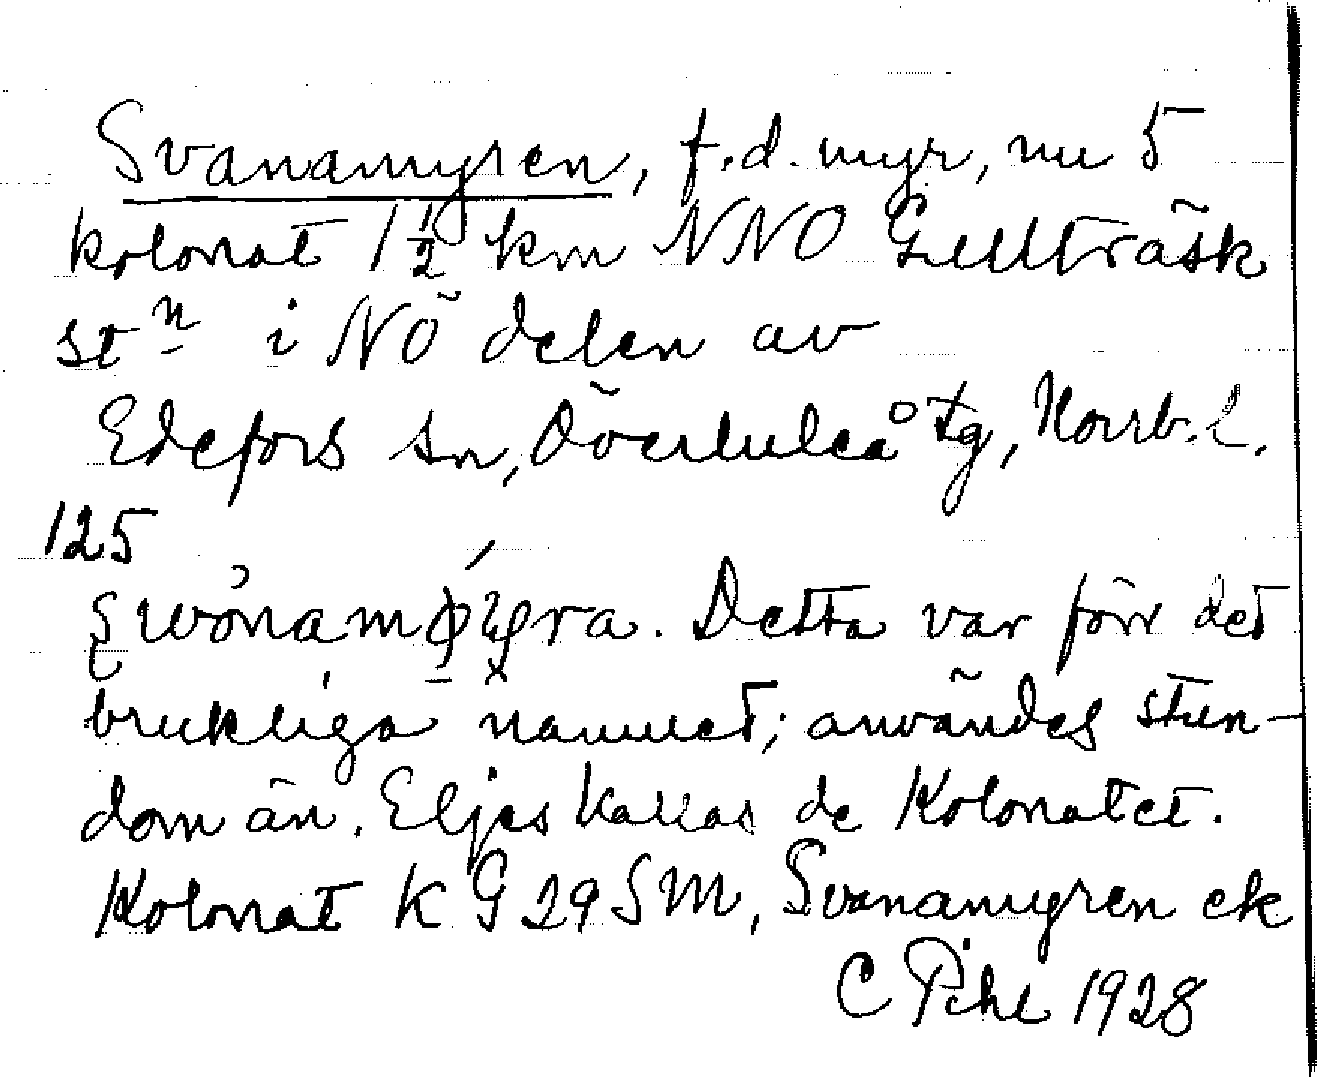 Svanamyren, f.d. myr, nu 5
kolonat 1½ km NNO Gullträsk
stn i NÖ delen av
Edefors sn, Överluleå tg, Norrb. l.
125
Detta var förr det
brukliga namnet; användes stun-
dom än. Eljes kallas de Kolonatet.
Kolonat K G 29 S M, Svanamyren ek
C Pihl 1928